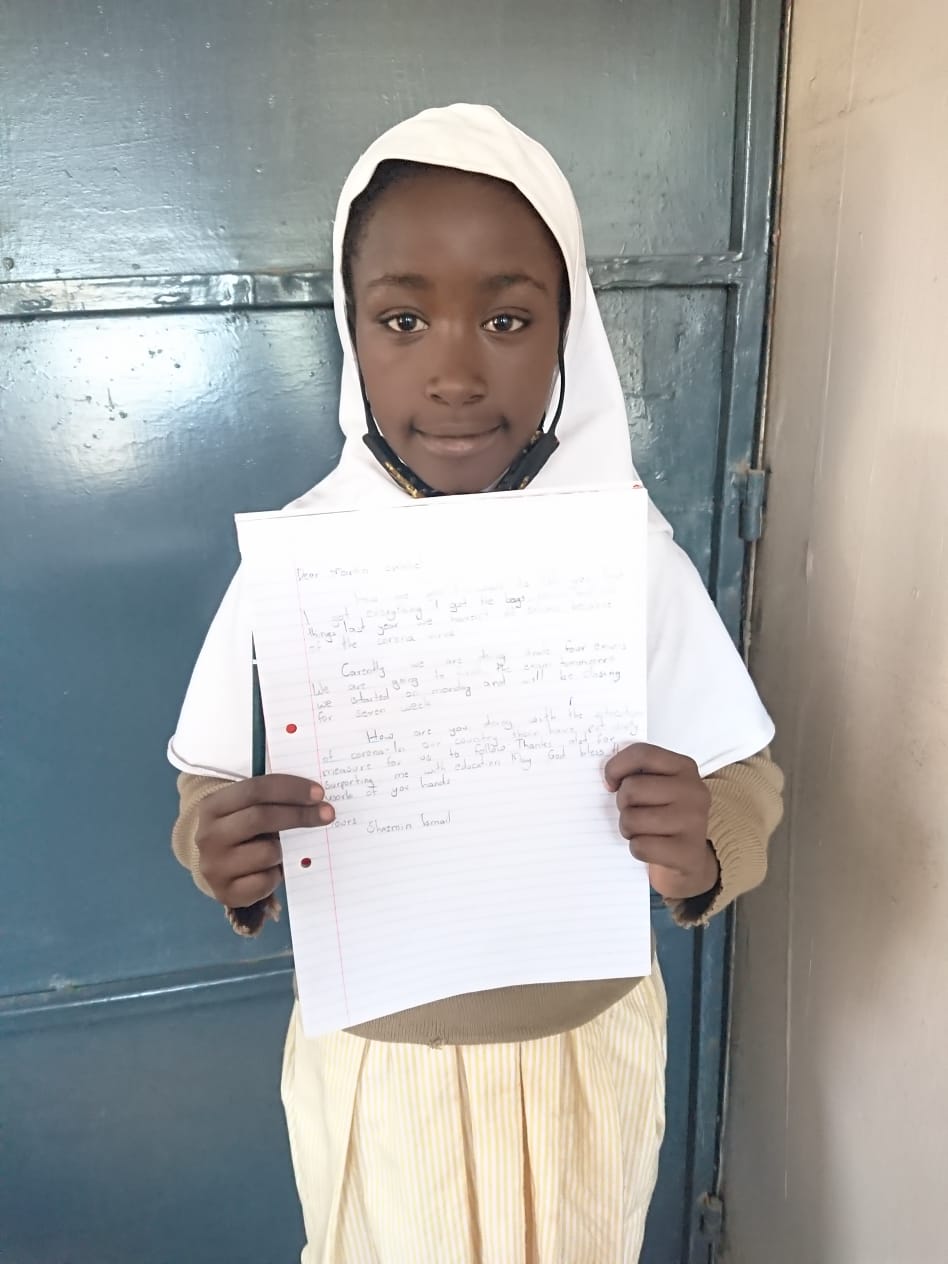 Dear
How are you I want to tell you that
I got everything I got the bags and
things last year we haven't because
of the corona virus
Carently we are doing some four exams
We are going to the exam tommorrow
we started on monday and will be closing
for seven week
How are you doing with the
of corona-In our country there have
measure for us to follow Thanks alot for
surporting me with education May God bless
work of your hands
Yours Shazmin Ismail